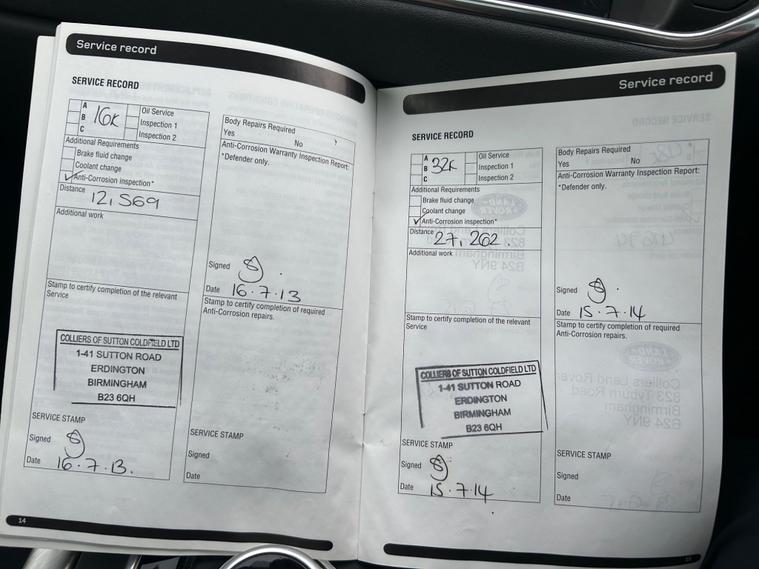 Service record
SERVICE RECORD
A
B
C
16K
Oil Service
Inspection 1
Inspection 2
Additional Requirements
Brake fluid change
Coolant change
Anti-Corrosion inspection*
Distance 12,569
Additional work
Stamp to certify completion of the relevant
Service
COLLIERS OF SUTTON COLDFIELD LTD
1-41 SUTTON ROAD
ERDINGTON
BIRMINGHAM
B23 6QH
SERVICE STAMP
Signed
Date 16.7.13.
14
Body Repairs Required
Yes No
Anti-Corrosion Warranty Inspection Report:
*Defender only.
Signed
Date 16.7.13
Stamp to certify completion of required
Anti-Corrosion repairs.
SERVICE STAMP
Signed
Date
Service record
SERVICE RECORD
A
B
C
32K
Oil Service
Inspection 1
Inspection 2
Additional Requirements
Brake fluid change
Coolant change
Anti-Corrosion inspection*
Distance 27,262
Additional work
Stamp to certify completion of the relevant
Service
COLLIERS OF SUTTON COLDFIELD LTD
1-41 SUTTON ROAD
ERDINGTON
BIRMINGHAM
B23 6QH
SERVICE STAMP
Signed
Date 15.7.14
Body Repairs Required
Yes No
Anti-Corrosion Warranty Inspection Report:
*Defender only.
Signed
Date 15.7.14
Stamp to certify completion of required
Anti-Corrosion repairs.
SERVICE STAMP
Signed
Date